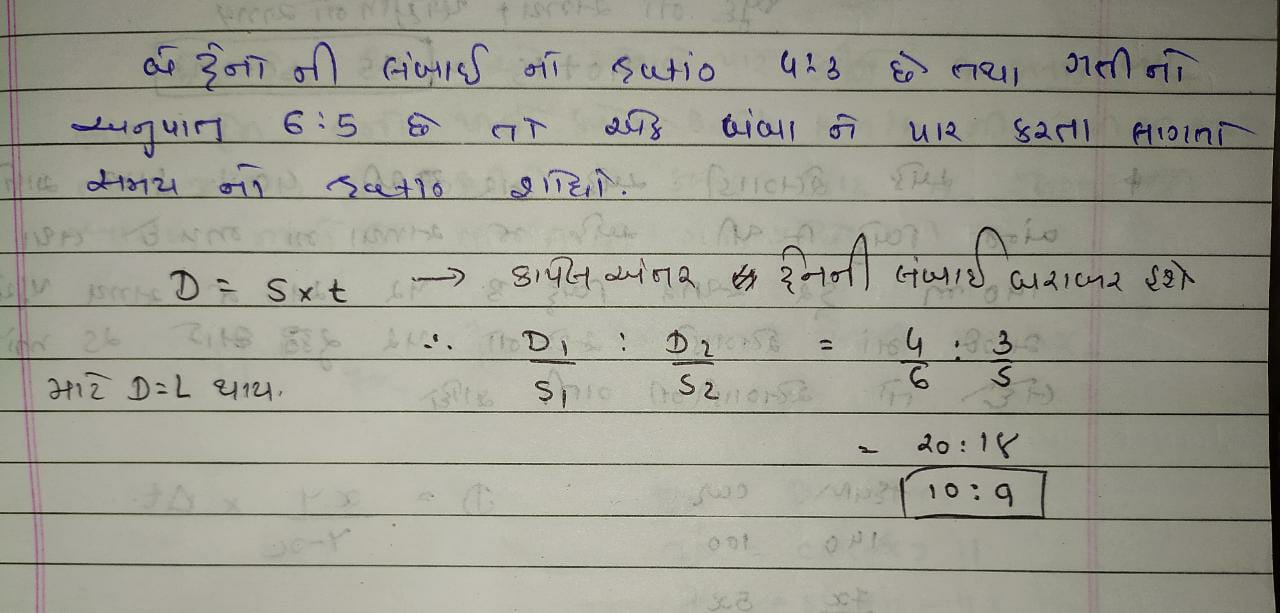 બે ટ્રેનો ની લંબાઈ નો ratio 4:3 છે તથા ગતીનો
અનુપાત 6:5 છે તો એક થાંભલા ને પાર કરતા લાગતા
સમય નો ratio શોધો.
D = S×t → કાપેલ અંતર ટ્રેનની લંબાઈ બરાબર હશે
∴ D₁/S₁ : D₂/S₂ = 4/6 : 3/5
માટે D=L થાય.
= 20:18
10:9